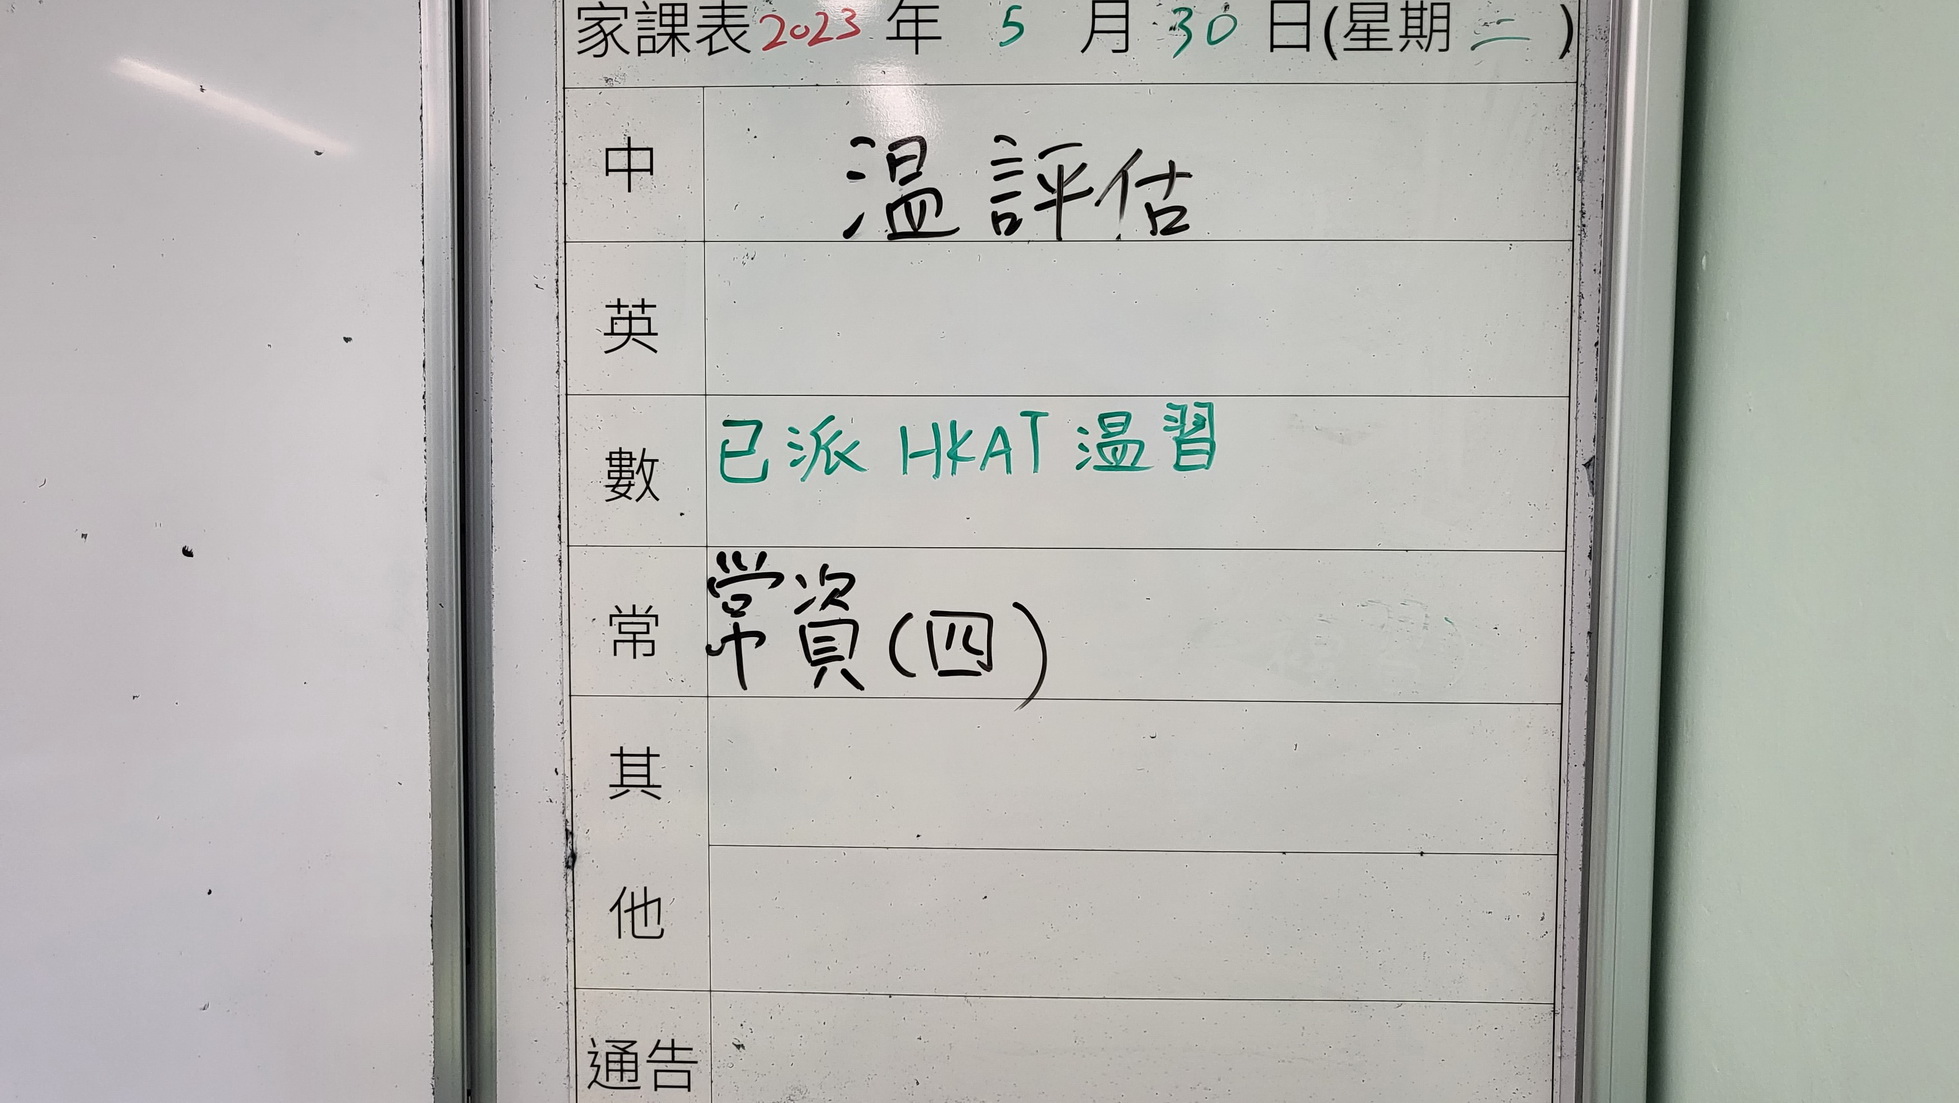 家課表2023年5月30日(星期二)
中
温評估
英
數
已派HKAT温習
常
常資(四)
其
他
通告